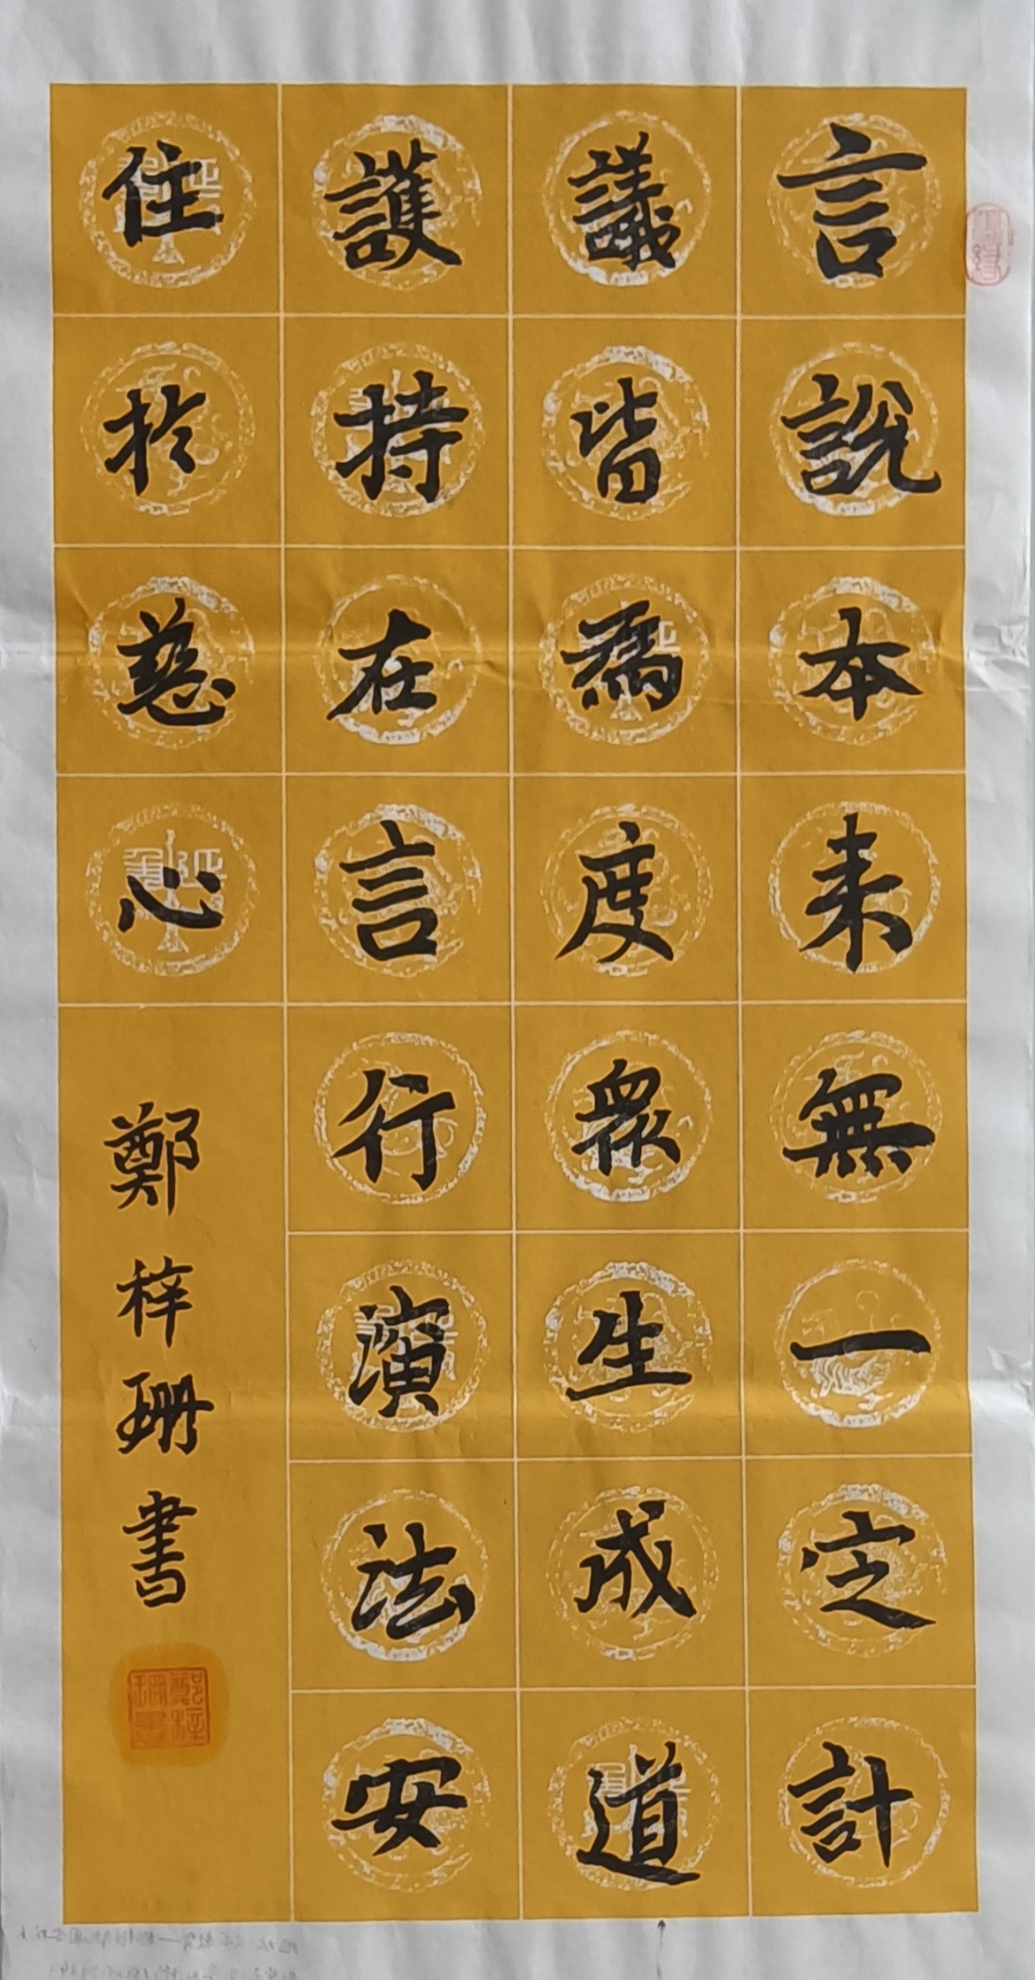 言說本来無一定計
議皆為度衆生成道
護持在言行演法安
住於慈心
鄭梓珊書